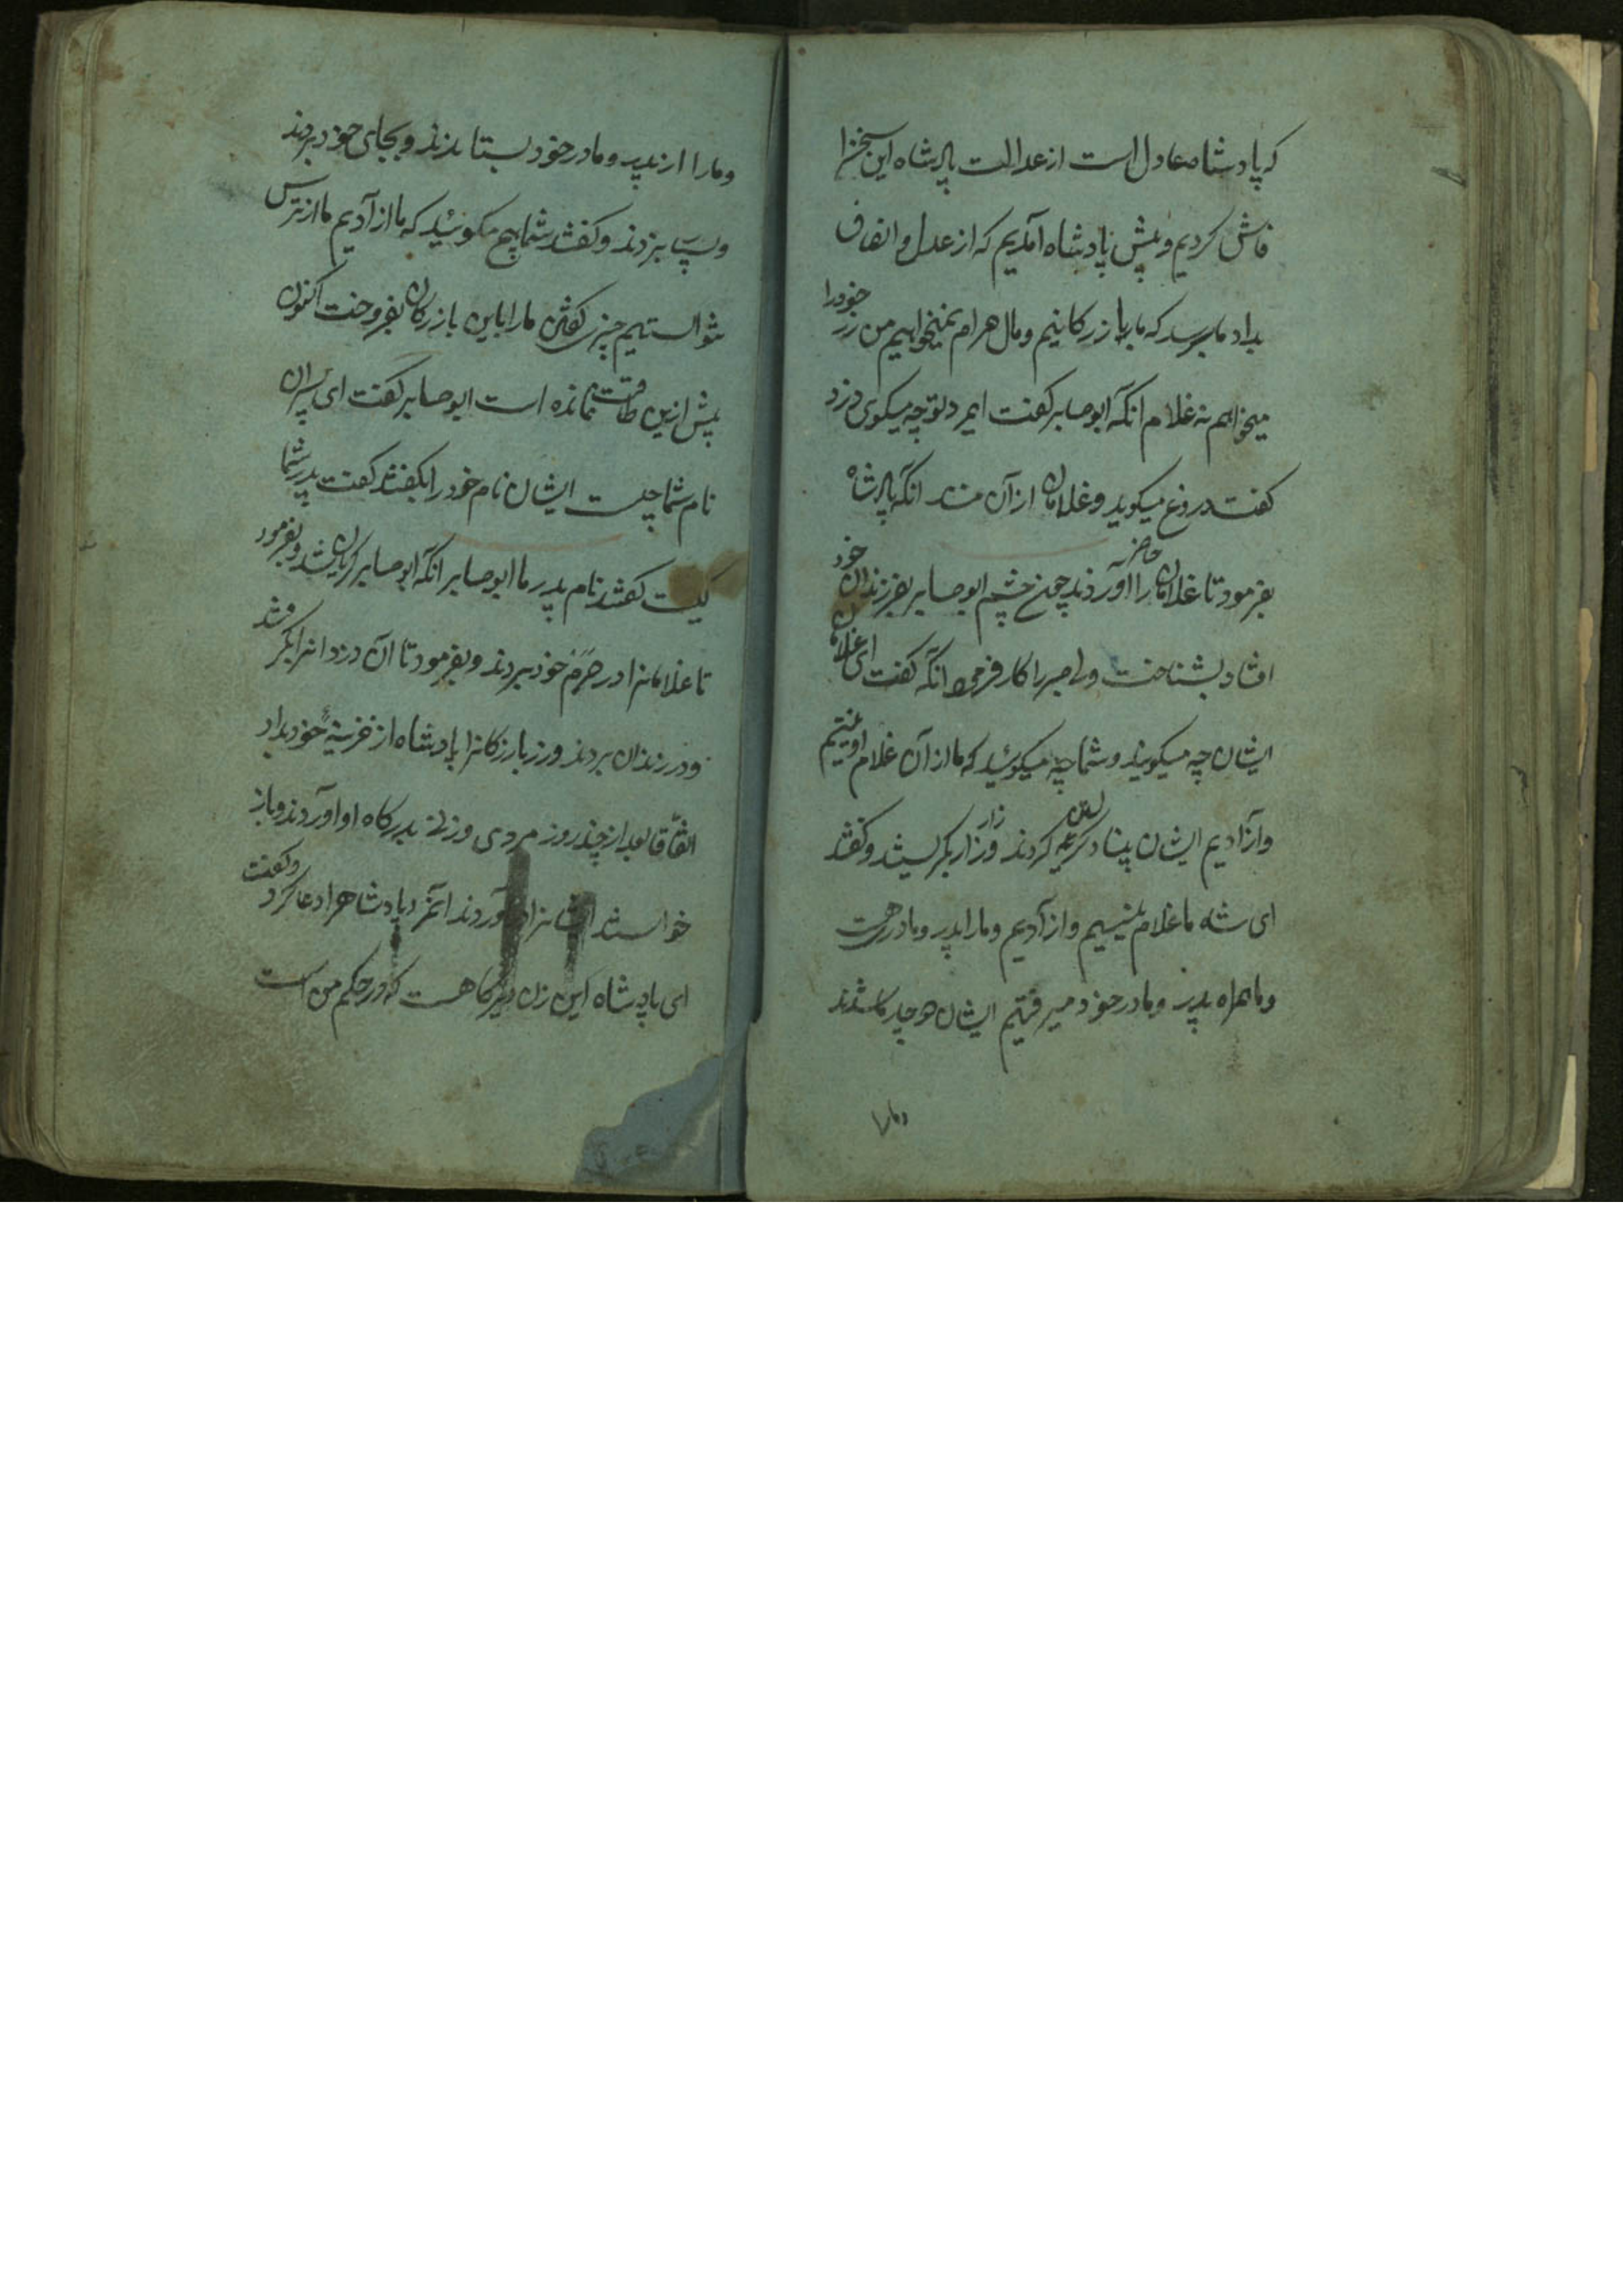 که پادشاه عادل است از عدالت پادشاه این سخنرا
فاش کردیم و پیش پادشاه آمدیم که از عدل و انصاف
بداد ما برسد که ما بازرکانیم و مال حرام نمیخواهیم من زر خودرا
میخواهم نه غلام انکه ابوصابر کفت ایمرد تو چه میکوی دزد
کفت دروغ میکوید و غلامان از آن منند انکه پادشاه
بفرمود تا غلامانرا حاضر آوردند چون چشم ابوصابر بفرزندان خود
افتاد بشناخت ولی صبر را کار فرمود انکه کفت ای غلامان
ایشان چه میکویند و شما چه میکوئید که ما از آن غلام او نیستیم
و آزادیم ایشان بنیاد کریه کردند و زار زار بکریستند و کفتند
ای شاه ما غلام نیستیم و از آدیم و مارا پدر و مادر هست
و ما همراه پدر و مادر خود میرفتیم ایشان دوچار ما شدند
و مارا
و مارا از پدر و مادر خود بستایدند و بجای خود بردند
و بزدند و کفتند شما هیچ مکوئید که ما از آدیم ما از ترس
نتوانستیم چیزی کفتن مارا باین بازرکان بفروخت اکنون
پیش ازین طاقت نمانده است ابوصابر کفت ای پسران
نام شما چیست ایشان نام خود را بکفتند کفت پدر شما
کیست کفتند نام پدر ما ابوصابر انکه ابوصابر کریان شد و بفرمود
تا غلامانرا در حرم خود بردند و بفرمود تا آن دزدانرا بکرفتند
و در زندان بردند و زر بازرکانرا پادشاه از خزینهٔ خود بداد
اتفاقا بعد از چند روز مردی و زنی بدرکاه او آوردند و باز
خواستند ایشانرا در آوردند آنمرد پادشاهرا دعا کرد و کفت
ای پادشاه این زن دیرکاهست که در حکم من است